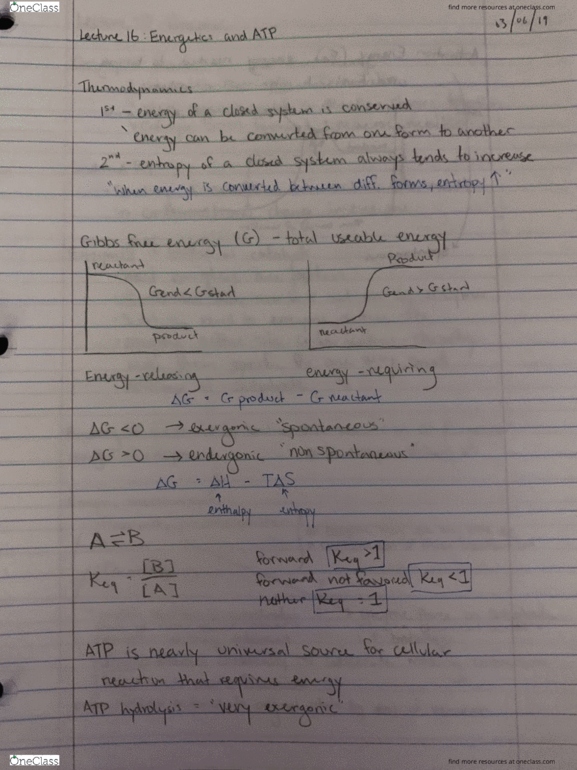 OneClass
find more resources at oneclass.com
13/06/19
Lecture 16: Energetics and ATP
Thermodynamics
1st - energy of a closed system is conserved
energy can be converted from one form to another
2nd - entropy of a closed system always tends to increase
"when energy is converted between diff. forms, entropy ↑"
Gibbs free energy (G) - total useable energy
reactant
Gend < Gstart
product
Product
Gend > Gstart
reactant
Energy-releasing
energy-requiring
ΔG = G product - G reactant
ΔG <0 → exergonic "spontaneous"
ΔG >0 → endergonic "non spontaneous"
ΔG = ΔH - TΔS
enthalpy entropy
A ⇌ B
Keq = [B] / [A]
forward Keq >1
forward not favored Keq <1
neither Keq = 1
ATP is nearly universal source for cellular
reaction that requires energy
ATP hydrolysis = "very exergonic"
OneClass
find more resources at oneclass.com